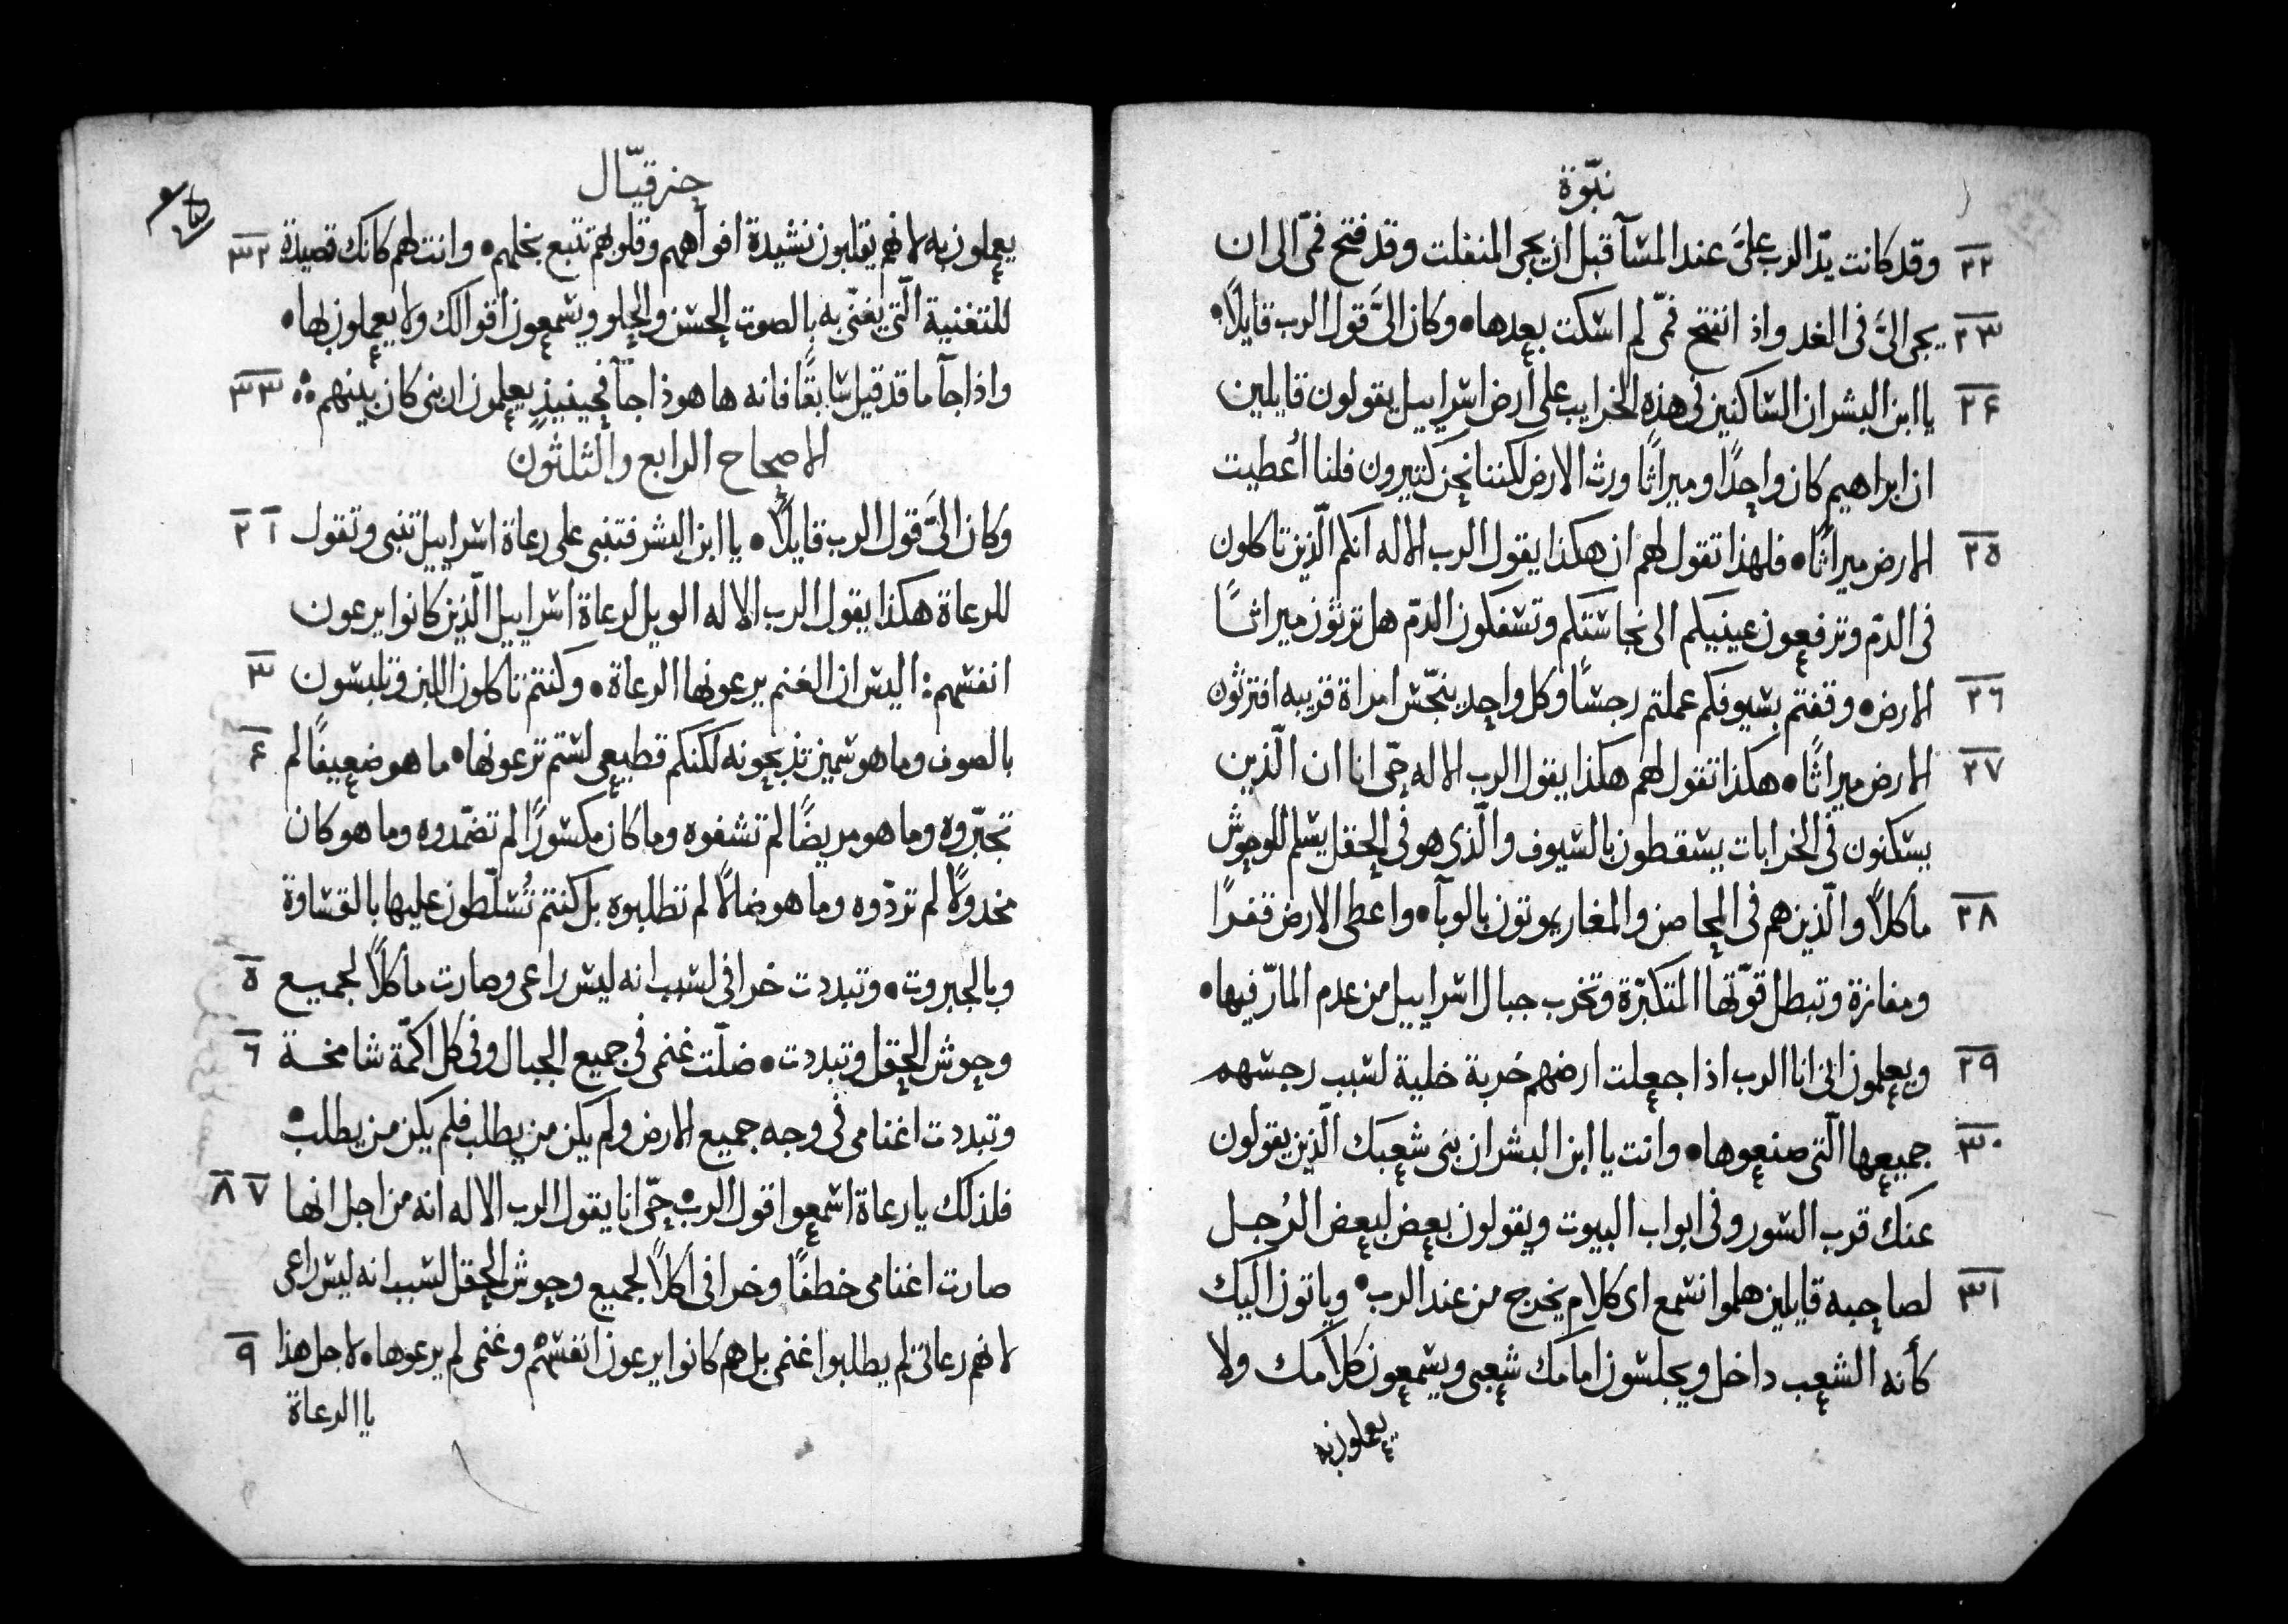 نبّوة
٢٢ وقد كانت يدّ الرب علىَّ عند المسآ قبل ان يجى المنفلت وقد فتح فمّى الى ان
٢٣ يجى الىَّ فى الغد واذ انفتح فمّى لم اسكت بعدها • وكان الىَّ قول الرب قايلًا •
٢٤ يا ابن البشر ان الساكنين فى هذه الخرايب على أرض اسراييل يقولون قايلين
ان ابراهيم كان واحدًا وميراثًا ورث الارض لكننا نحن كثيرون فلنا أُعطيت
٢٥ الارض ميراثًا • فلهذا تقول لهم ان هكذا يقول الرب الاله انكم الّذين تاكلون
فى الدمّ وترفعون عينيكم الى نجاستكم وتسفكون الدمّ هل ترثون ميراثًا
٢٦ الارض • وقفتم بسيوفكم عملتم رجسًا وكل واحد ينجّس امراة قريبه افترثون
٢٧ الارض ميراثًا • هكذا تقول لهم هكذا يقول الرب الاله حّى انا ان الّذين
يسكنون فى الخرابات يسقطون بالسيوف والّذى هو فى الحقل يسلم للوحوش
٢٨ مأكلًا والّذين هم فى المحاصن والمغاير يموتون بالوبآ • واعطى الارض قفرًا
ومفازة وتبطل قوّتها المتكبّرة وتخرب جبال اسراييل من عدم المارّ فيها •
٢٩ ويعلمون انى انا الرب اذا جعلت ارضهم خربة خلية لسبب رجسهم
٣٠ جميعها الّتى صنعوها • وانت يا ابن البشر ان بنى شعبك الّذين يقولون
عنك قرب السور وفى ابواب البيوت ويقولون بعض لبعض الرُجل
٣١ لصاحبه قايلين هلموا نسمع اى كلام يخرج من عند الرب • وياتون اليك
كأنه الشعب داخل ويجلسون امامك شعبى ويسمعون كلامك ولا
يعملون به
حزقيّال
يعملون به لانهم يقلبون نشيدة افواههم وقلوبهم تتبع بخلهم • وانت لهم كانك قصيدة ٣٢
للتغنية الّتى يغنّى به بالصوت الحسن والحلو ويسمعون اقوالك ولا يعملون بها •
واذا جآ ما قد قيل سابقًا فانه ها هوذا جآ فحينيذٍ يعلمون ان بنى كان بينهم ٣٣
الاصحاح الرابع والثلثون
وكان الىَّ قول الرب قايلًا • يا ابن البشر فتنبى على رعاة اسراييل تنبى وتقول ١ ٢
للرعاة هكذا يقول الرب الاله الويل لرعاة اسراييل الّذين كانوا يرعون
انفسهم : اليس ان الغنم يرعونها الرعاة • وكنتم تأكلون اللبن وتلبسون ٣
بالصوف وما هو سمين تذبحونه لكنكم قطيعى لستم ترعونها • ما هو ضعيفًا لم ٤
تجبّروه وما هو مريضًا لم تشفوه وما كان مكسورًا لم تضمّدوه وما هو كان
مخدولًا لم تردّوه وما هو ضالًا لم تطلبوه بل كنتم تُسلّطون عليها بالقساوة
وبالجبروت • وتبددت خرافى لسبب انه ليس راعى وصارت مأكلًا لجميع ٥
وحوش الحقل وتبددت • ضلّت غنمى فى جميع الجبال وفى كل اكمّة شامخة ٦
وتبددت اغنامى فى وجه جميع الارض ولم يكن من يطلب فلم يكن من يطلب •
فلذلك يا رعاة اسمعوا قول الرب • حّى انا يقول الرب الاله انه من اجل انها ٧ ٨
صارت اغنامى خطفًا وخرافى اكلًا لجميع وحوش الحقل لسبب انه ليس راعى
لانهم رعاتى لم يطلبوا غنمى بل هم كانوا يرعون انفسهُم وغنمى لم يرعوها • لاجل هذا ٩
يا الرعاة